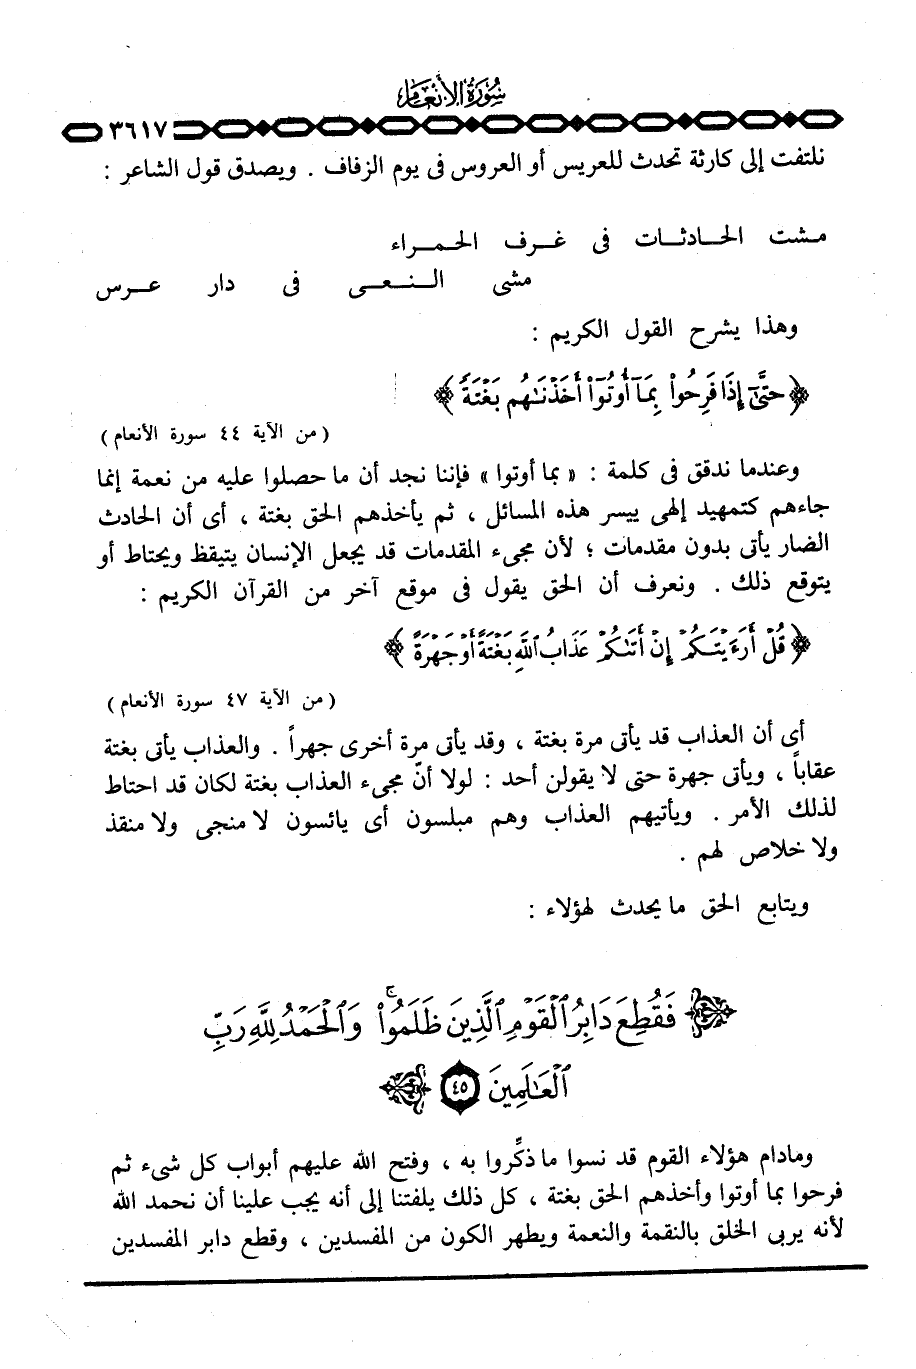 سورة الأنعام
٣٦١٧
نلتفت إلى كارثة تحدث للعريس أو العروس فى يوم الزفاف . ويصدق قول الشاعر :
مشت الحادثات فى غرف الحمراء
مشى النعى فى دار عرس
وهذا يشرح القول الكريم :
﴿ حَتَّىٰٓ إِذَا فَرِحُوا۟ بِمَآ أُوتُوٓا۟ أَخَذْنَـٰهُم بَغْتَةً ﴾
( من الآية ٤٤ سورة الأنعام )
وعندما ندقق فى كلمة : « بما أوتوا » فإننا نجد أن ما حصلوا عليه من نعمة إنما
جاءهم كتمهيد إلهى ييسر هذه المسائل ، ثم يأخذهم الحق بغتة ، أى أن الحادث
الضار يأتى بدون مقدمات ؛ لأن مجىء المقدمات قد يجعل الإنسان يتيقظ ويحتاط أو
يتوقع ذلك . ونعرف أن الحق يقول فى موقع آخر من القرآن الكريم :
﴿ قُلْ أَرَءَيْتَكُمْ إِنْ أَتَىٰكُمْ عَذَابُ ٱللَّهِ بَغْتَةً أَوْ جَهْرَةً ﴾
( من الآية ٤٧ سورة الأنعام )
أى أن العذاب قد يأتى مرة بغتة ، وقد يأتى مرة أخرى جهراً . والعذاب يأتى بغتة
عقاباً ، ويأتى جهرة حتى لا يقولن أحد : لولا أنّ مجىء العذاب بغتة لكان قد احتاط
لذلك الأمر . ويأتيهم العذاب وهم مبلسون أى يائسون لا منجى ولا منقذ
ولا خلاص لهم .
ويتابع الحق ما يحدث لهؤلاء :
فَقُطِعَ دَابِرُ ٱلْقَوْمِ ٱلَّذِينَ ظَلَمُوا۟ۚ وَٱلْحَمْدُ لِلَّهِ رَبِّ
ٱلْعَـٰلَمِينَ ٤٥
ومادام هؤلاء القوم قد نسوا ما ذكِّروا به ، وفتح الله عليهم أبواب كل شىء ثم
فرحوا بما أوتوا وأخذهم الحق بغتة ، كل ذلك يلفتنا إلى أنه يجب علينا أن نحمد الله
لأنه يربى الخلق بالنقمة والنعمة ويطهر الكون من المفسدين ، وقطع دابر المفسدين